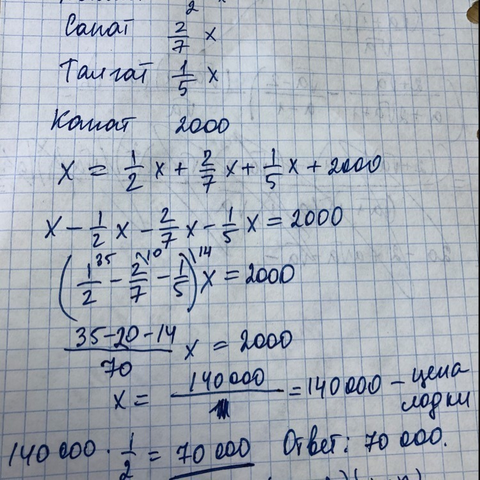 2 x
Санат 2/7 x
Талгат 1/5 x
Канат 2000
x = 1/2 x + 2/7 x + 1/5 x + 2000
x - 1/2 x - 2/7 x - 1/5 x = 2000
(1/2 \35 - 2/7 \10 - 1/5 \14) x = 2000
35-20-14/70 x = 2000
x = 140 000/1 = 140 000 - цена лодки
140 000 · 1/2 = 70 000 Ответ: 70 000.